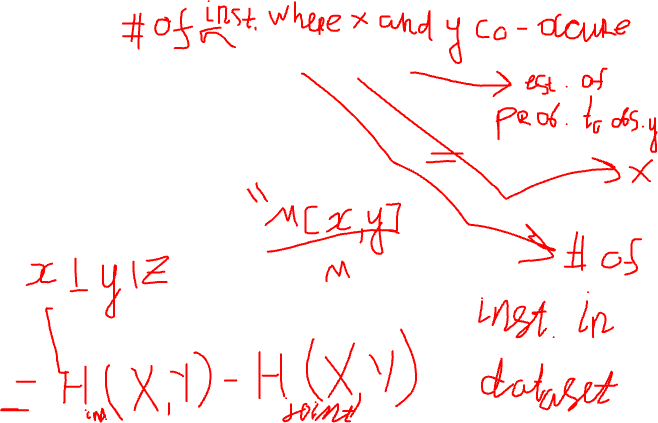 # of inst. where x and y co-occure
est. of
prob. to obs. y
=
x
" M[x,y]
M
# of
inst. in
dataset
x ⊥ y | z
= H ind (X,Y) - H joint (X,Y)